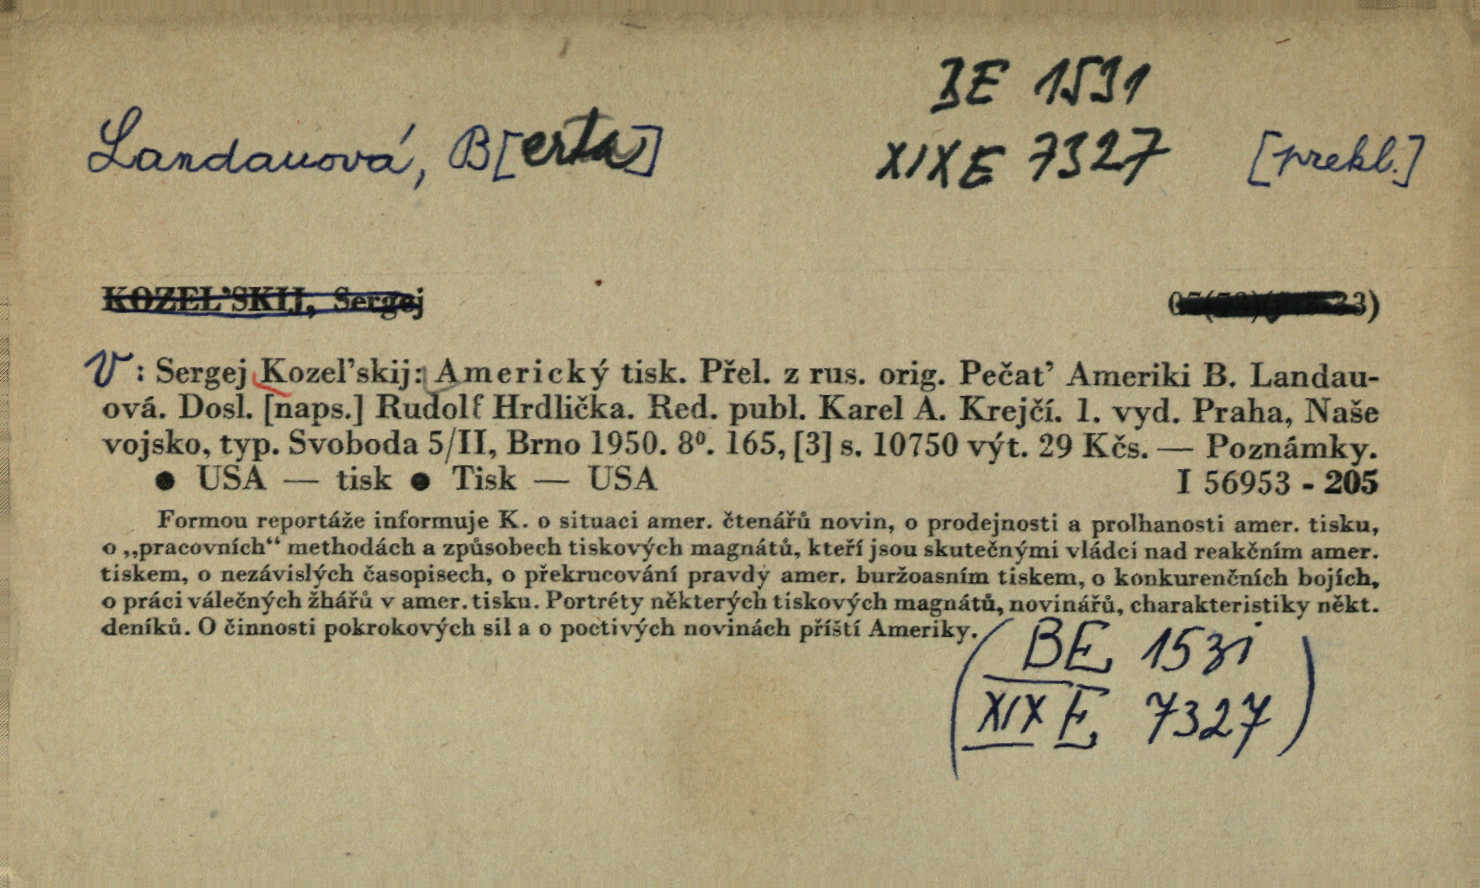 BE 1531
Landauová, B[erta] XIX E 7327 [překl.]
KOZEL'SKIJ, Sergej
V: Sergej Kozel'skij: Americký tisk. Přel. z rus. orig. Pečať Ameriki B. Landau-
ová. Dosl. [naps.] Rudolf Hrdlička. Red. publ. Karel A. Krejčí. 1. vyd. Praha, Naše
vojsko, typ. Svoboda 5/II, Brno 1950. 8⁰. 165, [3] s. 10750 výt. 29 Kčs. — Poznámky.
● USA — tisk ● Tisk — USA I 56953 - 205
Formou reportáže informuje K. o situaci amer. čtenářů novin, o prodejnosti a prolhanosti amer. tisku,
o „pracovních“ methodách a způsobech tiskových magnátů, kteří jsou skutečnými vládci nad reakčním amer.
tiskem, o nezávislých časopisech, o překrucování pravdy amer. buržoasním tiskem, o konkurenčních bojích,
o práci válečných žhářů v amer. tisku. Portréty některých tiskových magnátů, novinářů, charakteristiky někt.
deníků. O činnosti pokrokových sil a o poctivých novinách příští Ameriky.
(BE 1531
XIX E 7327)